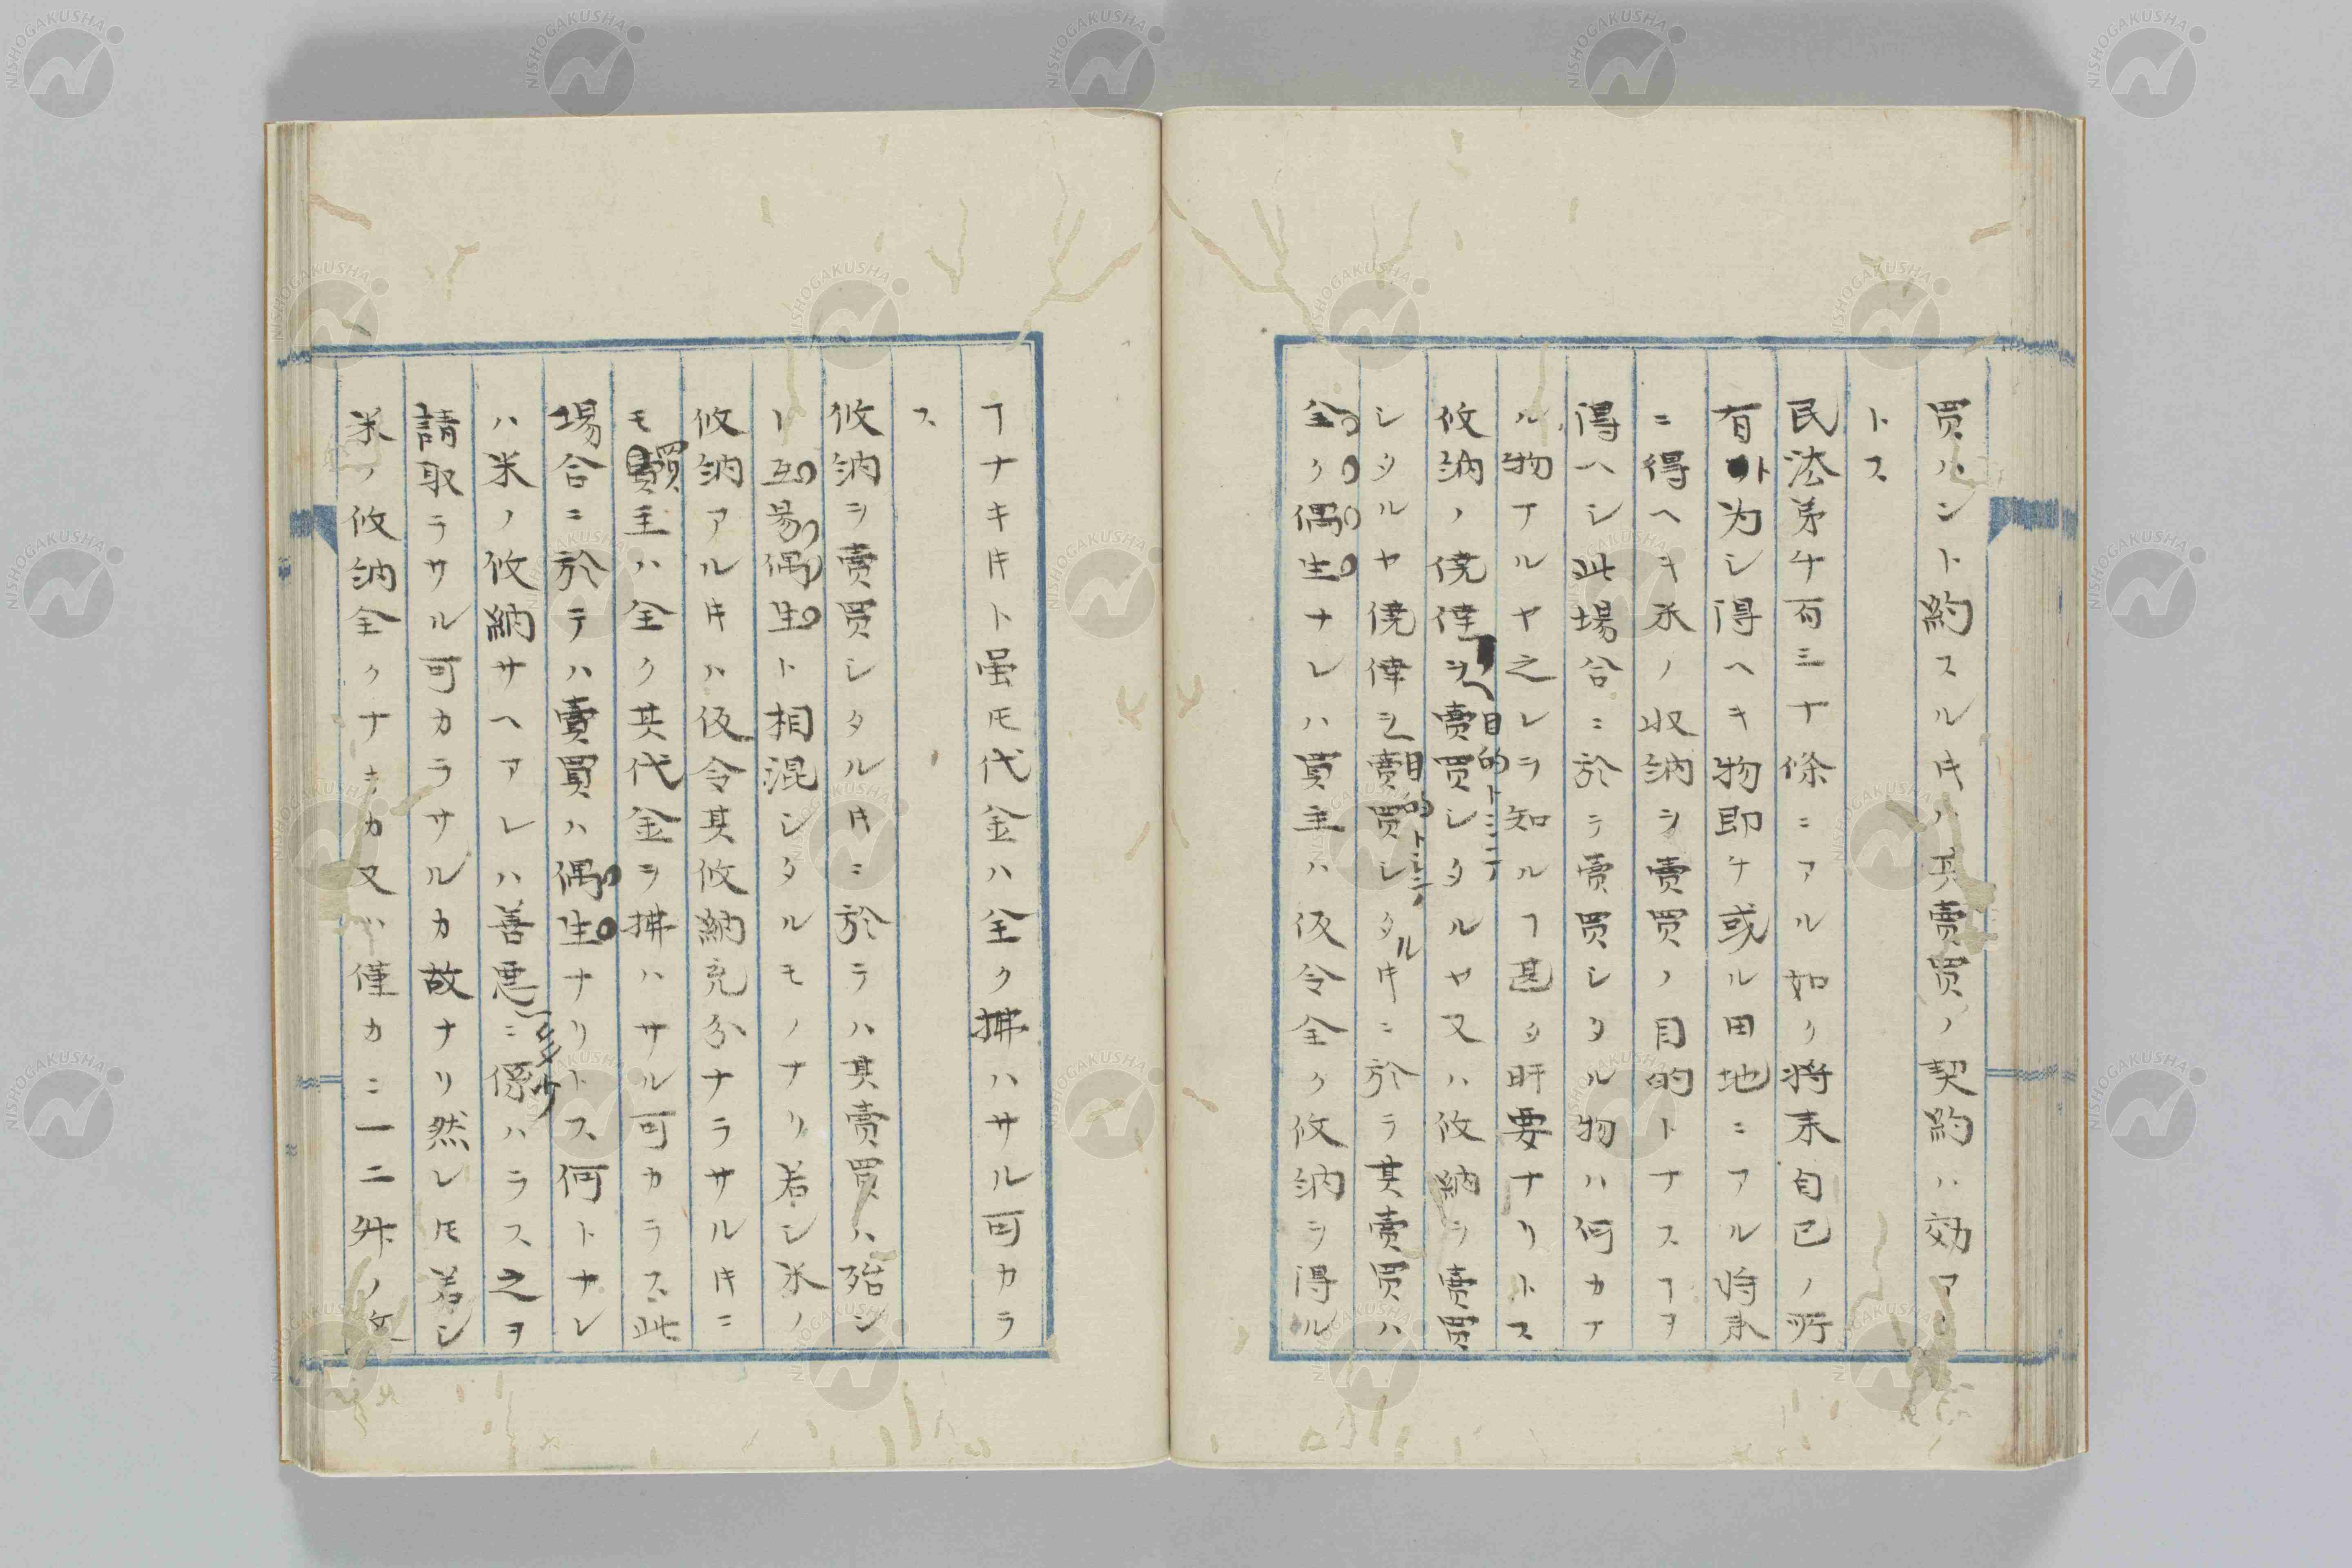 買ハント約スル𪜈ハ其賣買ノ契約ハ効ア
トス
民法第千百三十條ニアル如ク將来自己ノ所
有ト為シ得ヘキ物即チ或ル田地ニアル將来
ニ得ヘキ米ノ収納ヲ賣買ノ目的トナスヿヲ
得ヘシ此場合ニ於テ賣買シタル物ハ何カア
ル物アルヤ之レヲ知ルヿ甚タ肝要ナリトス
收納ノ僥倖ヲ目的トシテ賣買シタルヤ又ハ收納ヲ賣買
シタルヤ僥倖ヲ目的トシテ賣買シタル𪜈ニ於テ其賣買ハ
全ク偶生ナレハ買主ハ仮令全ク收納ヲ得ル
ヿナキ𪜈ト雖𪜈代金ハ全ク拂ハサル可カラ
ス
收納ヲ賣買シタル𪜈ニ於テハ其賣買ハ殆ン
ト互易偶生ト相混シタルモノナリ若シ米ノ
收納アル𪜈ハ仮令其收納充分ナラサル𪜈ニ
モ買主ハ全ク其代金ヲ拂ハサル可カラス此
場合ニ於テハ賣買ハ偶生ナリトス何トナレ
ハ米ノ收納サヘアレハ善悪多少ニ係ハラス之ヲ
請取ラサル可カラサルカ故ナリ然レ𪜈若シ
米ノ收納全クナキカ又ハ僅カニ一二舛ノ收